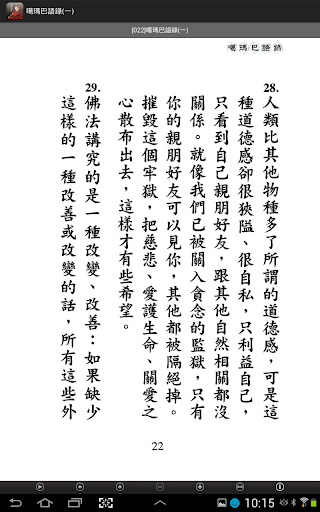 噶瑪巴語錄(一)
[022]噶瑪巴語錄(一)
噶瑪巴語錄
28. 人類比其他物種多了所謂的道德感，可是這
種道德感卻很狹隘、很自私，只利益自己，
只看到自己親朋好友，跟其他自然相關都沒
關係。就像我們已被關入貪念的監獄，只有
你的親朋好友可以見你，其他都被隔絕掉。
摧毀這個牢獄，把慈悲、愛護生命、關愛之
心散布出去，這樣才有些希望。
29. 佛法講究的是一種改變、改善：如果缺少
這樣的一種改善或改變的話，所有這些外
22
10:15